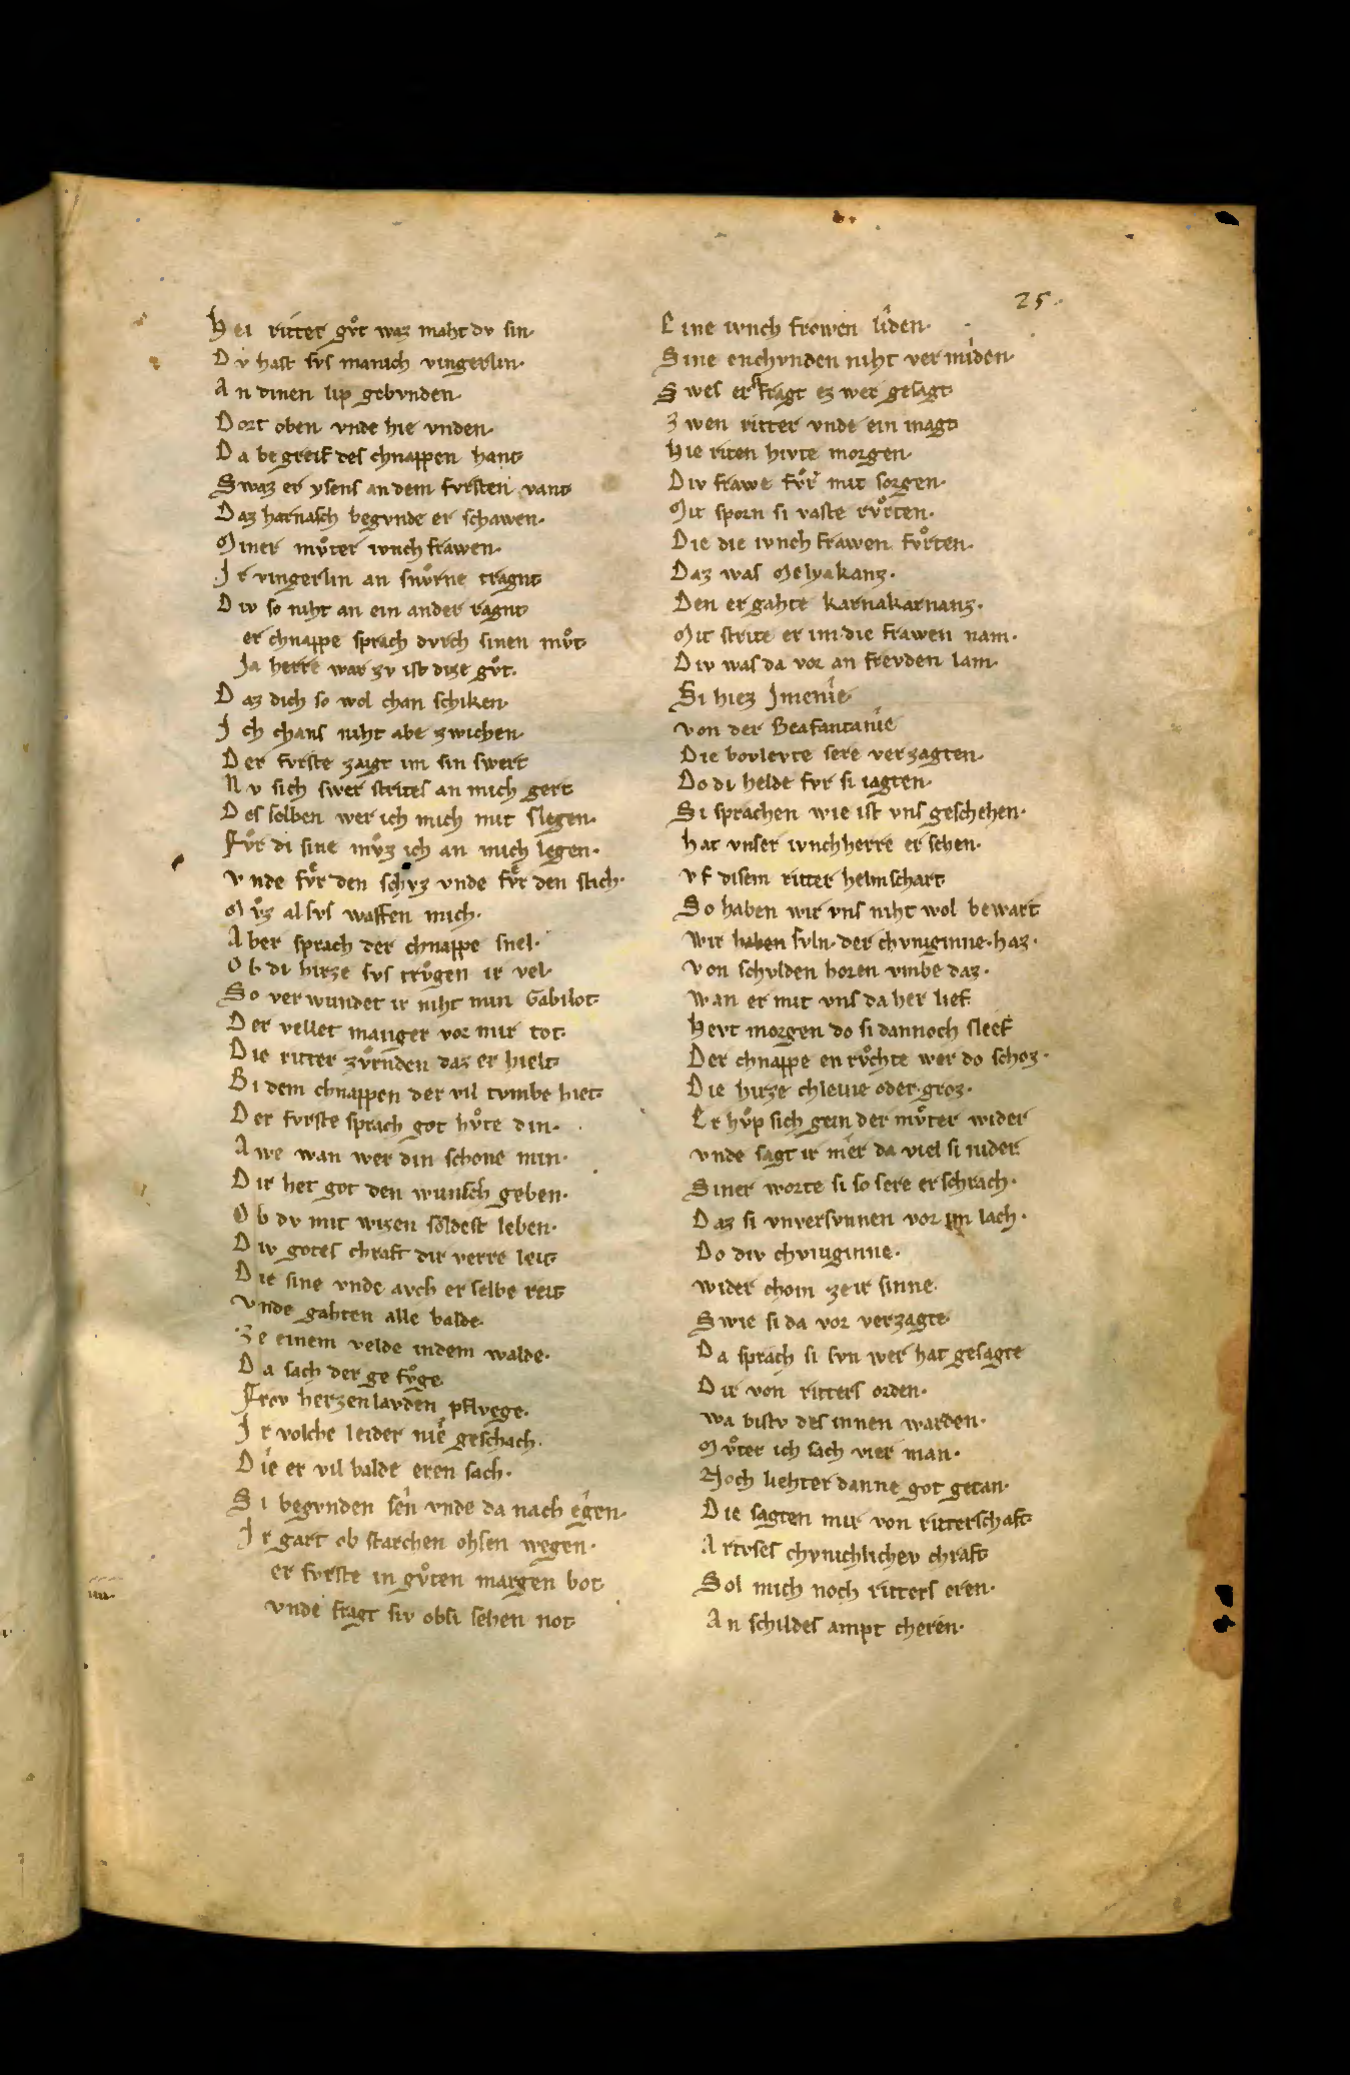 25.
Hei ritter gůt waz maht dv sin·
Dv hast svs manich vingerlin·
An dinen lip gebvnden·
Dort oben vnde hie vnden·
Da begreif des chnappen hant·
Swaz er ysens an dem fvrsten vant·
Daz harnasch begvnde er schawen·
Miner mv̊ter ivnch frawen·
Ir vingerlin an snv̊rne tragnt·
Div so niht an ein ander ragnt·
er chnappe sprach dvrch sinen mv̊t·
Ja herre war zv ist dize gv̊t·
Daz dich so wol chan schiken·
Ich chans niht abe zwichen·
Der fvrste zaigt im sin swert
Nv sich swer strites an mich gert
Des selben wer ich mich mit slegen·
Fv̊r di sine mv̊z ich an mich legen·
Vnde fv̊r den schvz vnde fv̊r den stich·
Mv̊z alsvs waffen mich·
Aber sprach der chnappe snel·
Ob di hirze svs trv̊gen ir vel·
So verwundet ir niht min Gabilot·
Der vellet manger vor mir tot·
Die ritter zv̊rnden daz er hielt·
Bi dem chnappen der vil tvmbe hiet·
Der fvrste sprach got hv̊te din·
Awe wan wer din schone min·
Dir het got den wunsch geben·
Ob dv mit wizen soldest leben·
Div gotes chraft dir verre leit·
Die sine vnde avch er selbe reit
Vnde gahten alle balde·
Ze einem velde indem walde·
Da sach der ge fv̊ge
Frov herzenlavden pflvege·
Ir volche leider nie geschach·
Die er vil balde eren sach·
Si begvnden sen vnde da nach egen·
Ir gart ob starchen ohsen wegen·
er fvrste in gv̊ten margen bot
vnde fragt siv obsi sehen not
Eine ivnch frowen liden·
Sine enchvnden niht vermiden·
Swes er fragt ez wer gesagt
Zwen ritter vnde ein magt
Hie riten hivte morgen·
Div frawe fv̊r mit sorgen·
Mit sporn si vaste rv̊rten·
Die die ivnch frawen fv̊rten·
Daz was Melyakanz·
Den ergahte karnakarnanz·
Mit strite er im die frawen nam·
Div was da vor an frevden lam·
Si hiez Jmenie
von der Beafantanie
Die bovlevte sere verzagten·
Do di helde fvr si iagten·
Si sprachen wie ist vns geschehen·
hat vnser ivnchherre ersehen·
vf disem ritter helmschart
So haben wir vns niht wol bewart
Wir haben svln der chvniginne haz·
Von schvlden horen vmbe daz·
Wan er mit vns da her lief
Hevt morgen do si dannoch sleef
Der chnappe en rv̊chte wer do schoz·
Die hirze chleine oder groz·
Er hv̊p sich gein der mv̊ter wider
vnde sagt ir mer da viel si nider
Siner worte si so sere erschrach·
Daz si vnversvnnen vor im lach·
Do div chvniginne·
wider chom ze ir sinne
Swie si da vor verzagte
Da sprach si svn wer hat gesagte
Dir von ritters orden·
wa bistv des innen warden·
Mv̊ter ich sach vier man·
Noch liehter danne got getan·
Die sagten mir von ritterschaft
Artvses chvnichlichev chraft
Sol mich noch ritters eren·
An schildes ampt cheren·